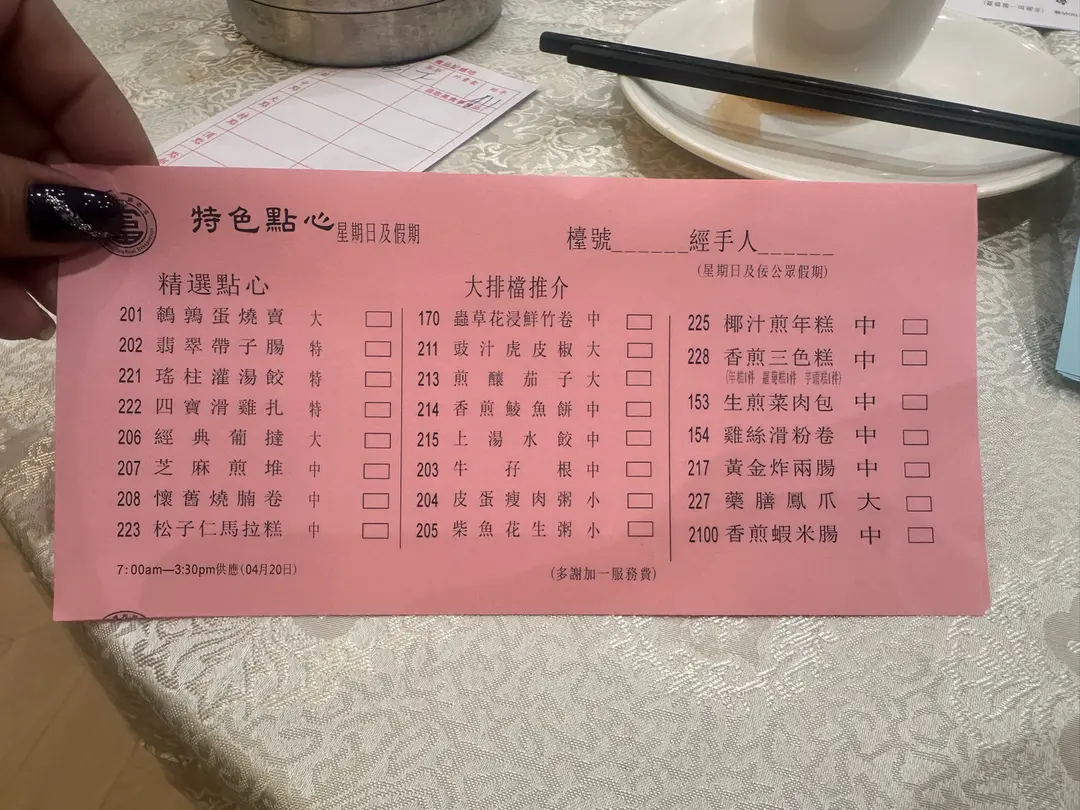 特色點心 星期日及假期
檯號______經手人______
(星期日及佞公眾假期)
精選點心
201 鵪鶉蛋燒賣 大
202 翡翠帶子腸 特
221 瑤柱灌湯餃 特
222 四寶滑雞扎 特
206 經典葡撻 大
207 芝麻煎堆 中
208 懷舊燒腩卷 中
223 松子仁馬拉糕 中
7:00am—3:30pm供應(04月20日)
大排檔推介
170 蟲草花浸鮮竹卷 中
211 豉汁虎皮椒 大
213 煎釀茄子 大
214 香煎鯪魚餅 中
215 上湯水餃 中
203 牛孖根 中
204 皮蛋瘦肉粥 小
205 柴魚花生粥 小
(多謝加一服務費)
225 椰汁煎年糕 中
228 香煎三色糕 中
(年糕1件 蘿蔔糕1件 芋頭糕1件)
153 生煎菜肉包 中
154 雞絲滑粉卷 中
217 黃金炸兩腸 中
227 藥膳鳳爪 大
2100 香煎蝦米腸 中